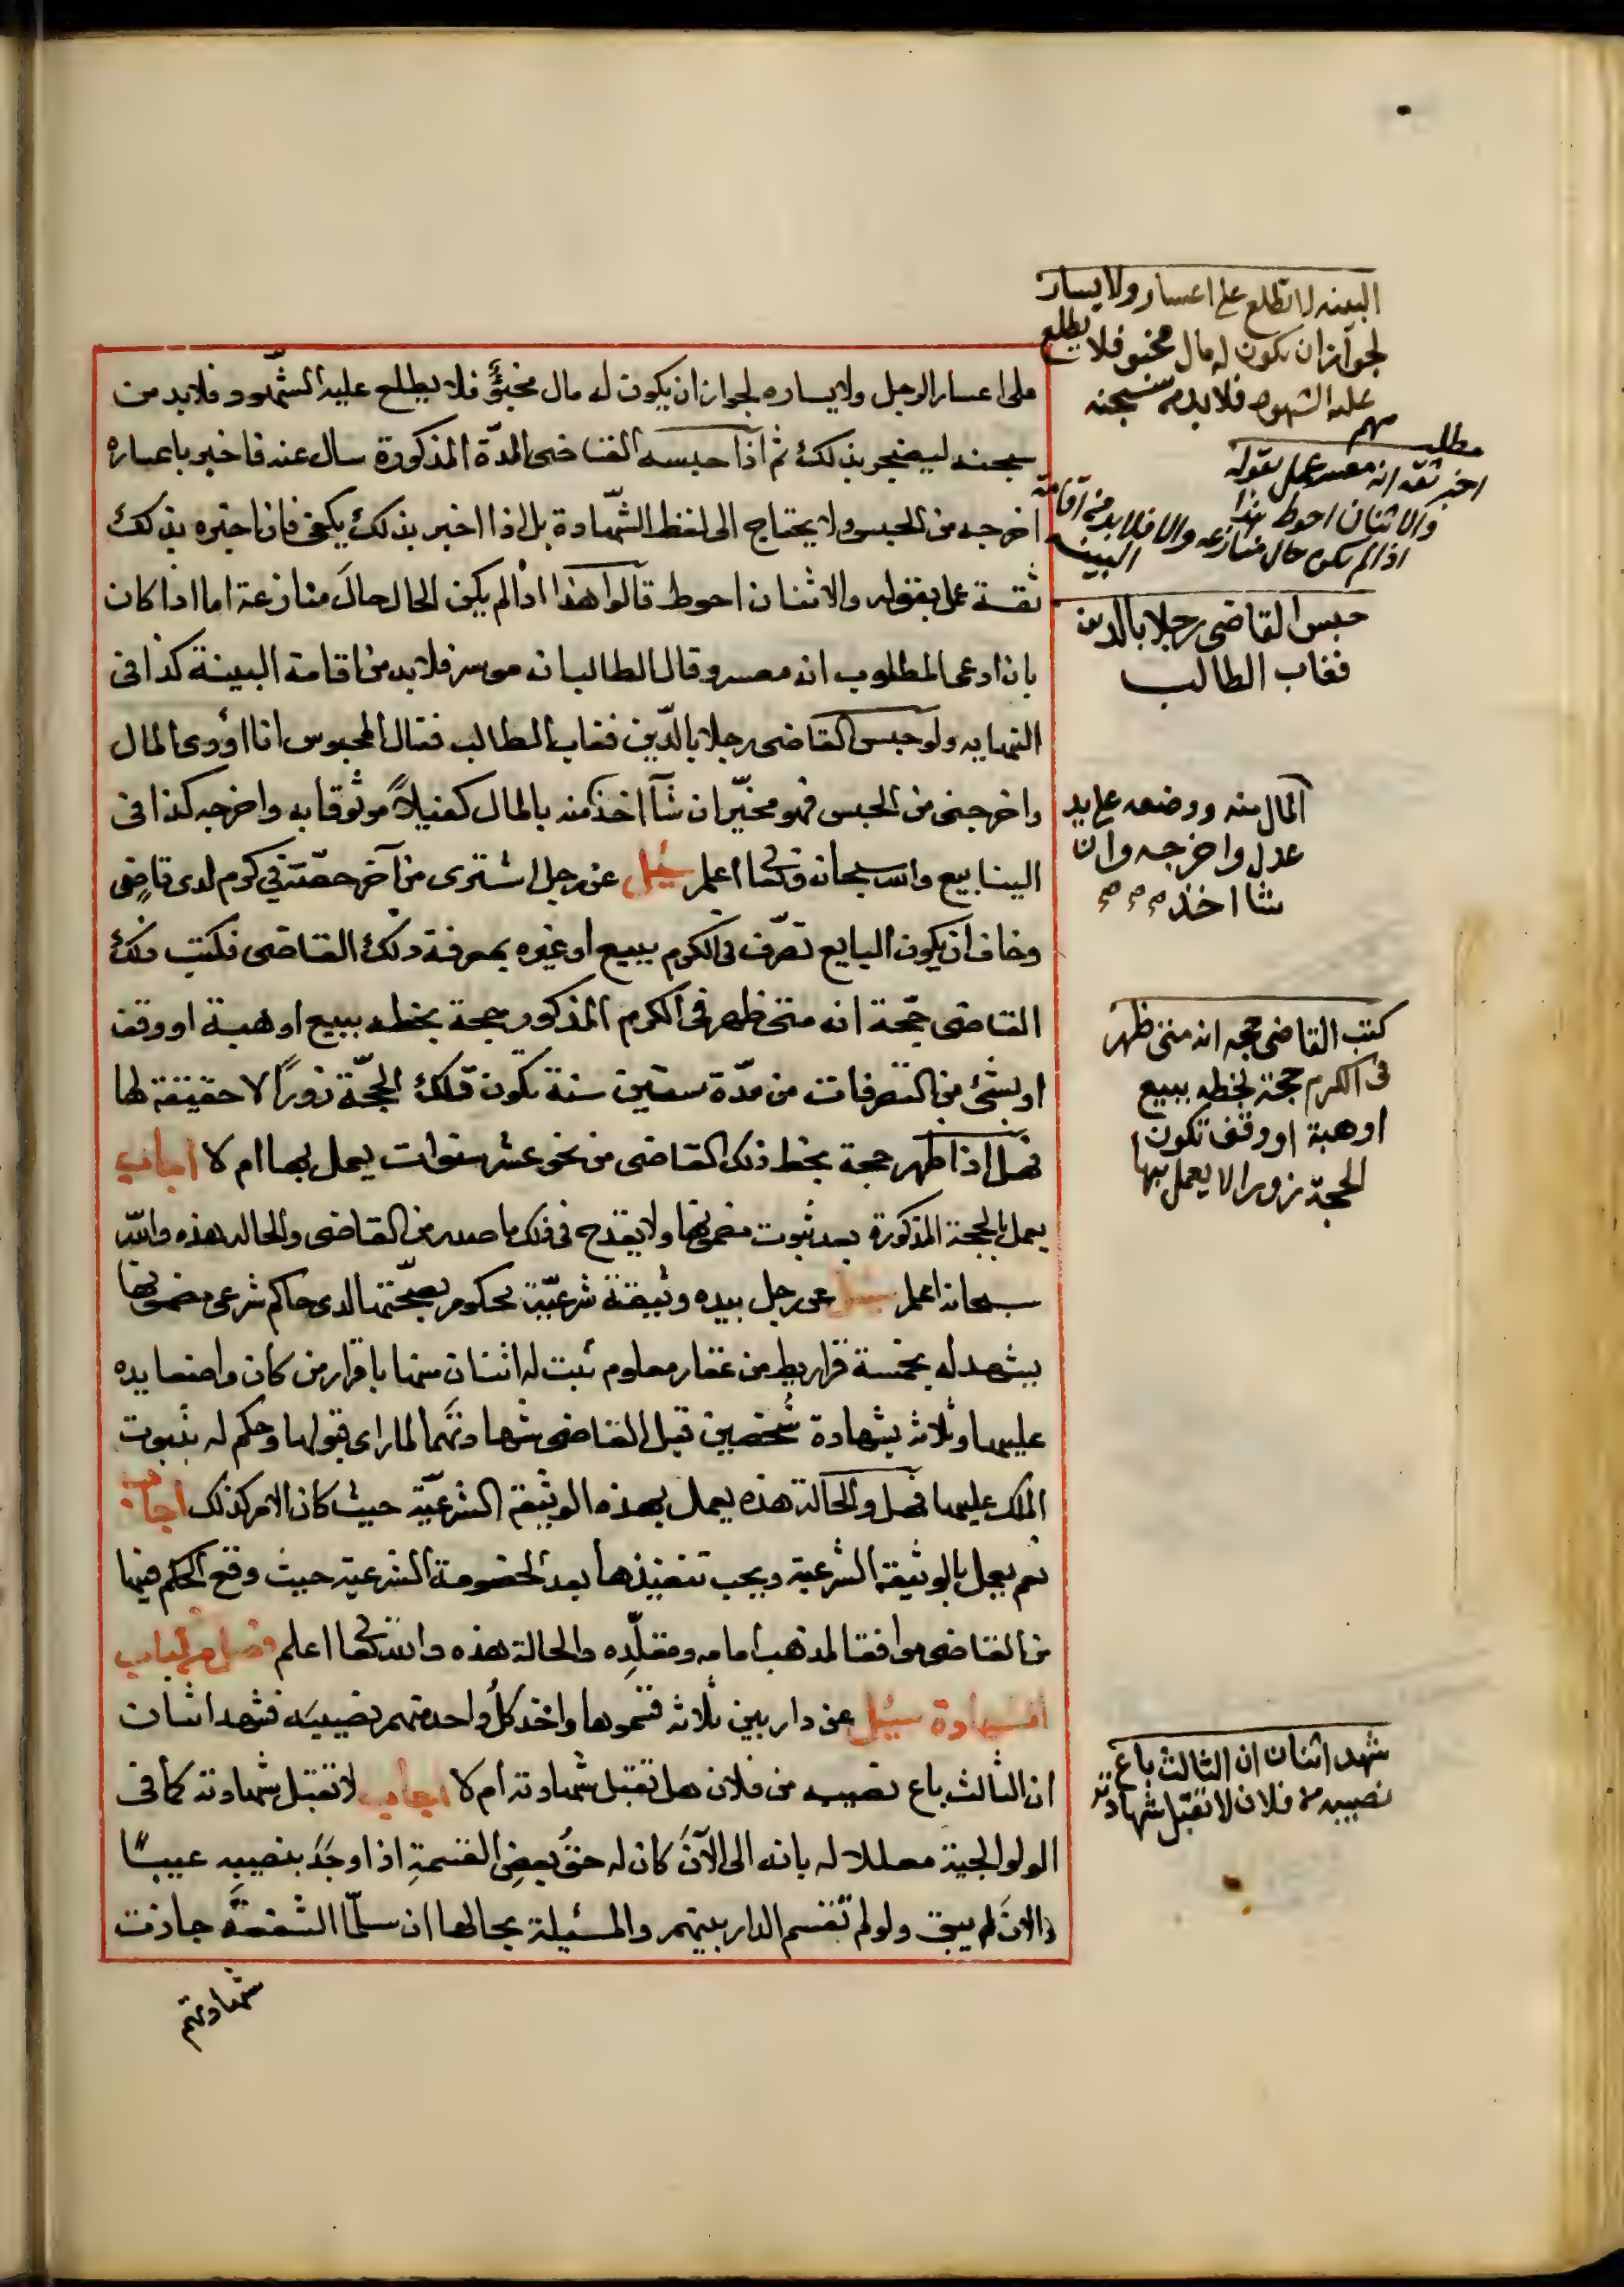 على اعسار الرجل ولا يساره لجواز ان يكون له مال مخبؤ فلا يطلع عليه الشهود فلا بد من
سجنه ليضجر بذلك ثم اذا حبسه القاضى المدة المذكورة سال عنه فاخبر باعساره
اخرجه من الحبس ولا يحتاج الى لفظ الشهادة بل اذا اخبر بذلك يكفى فاذا اخبره بذلك
ثقة عمل بقوله والاثنان احوط قالوا هذا اذا لم يكن الحال حال منازعة اما اذا كان
بان ادعى المطلوب انه معسر وقال الطالب انه موسر فلا بد من اقامة البينة كذا فى
النهايه ولو حبس القاضى رجلا بالدين فغاب الطالب فقال المحبوس انا اؤدى المال
واخرجنى من الحبس فهو مخير ان شآ اخذ منه بالمال كفيلاً موثوقا به واخرجه كذا فى
الينابيع والله سبحانه وتعالى اعلم سئيل عن رجل اشترى من آخر حصته في كرم لدى قاضٍى
وخاف ان يكون البايع تصرف فى الكرم ببيع او غيره بمعرفة ذلك القاضى فكتب ذلك
القاضى حجة انه متى ظهر فى الكرم المذكور حجة بخطه ببيع او هبة او وقف
او بشئ من التصرفات من مدة ستين سنة تكون تلك الحجة زوراً لا حقيقة لها
فهل اذا ظهر حجة بخط ذلك القاضى من نحو عشر سنوات يعمل بها ام لا اجاب
يعمل بالحجة المذكورة بعد ثبوت مضمونها ولا يقدح فى ذلك ما صدر من القاضى والحاله هذه والله
سبحانه اعلم سئيل عن رجل بيده وثيقة شرعية محكوم بصحتها لدى حاكم شرعى مضمونها
يشهد له بخمسة قراريط من عقار معلوم ثبت له اثنان منها باقرار من كان واضعا يده
عليهما وثلاثه بشهادة شخصين قبل القاضى شهادتهما لما راى قبولها وحكم له بثبوت
الملك عليهما فهل والحالة هذه يعمل بهذه الوثيقة الشرعية حيث كان الامر كذلك اجاب
نعم يعمل بالوثيقة الشرعية ويجب تنفيذها بعد الخصومة الشرعية حيث وقع الحكم فيها
من القاضى موافقا لمذهب امامه ومقلده والحالة هذه والله تعالى اعلم فصل من كتاب
الشهادة سئيل عن دار بين ثلاثه قسموها واخذ كل واحد منهم نصيبه فشهد اثنان
ان الثالث باع نصيبه من فلان هل تقبل شهادته ام لا اجاب لا تقبل شهادته كما فى
الولوالجية معللا له بانه الى الآن كان له حق بعض القسمة اذا وجد بنصيبه عيبًا
والان لم يبق ولو لم تقسم الدار بينهم والمسئيلة بحالها ان سلما الشفعة جازت
شهادتهم
البينه لا تطلع على اعسار ولا يسار
لجواز ان يكون له مال مخبو فلا يطلع
عليه الشهود فلا بد من سجنه
مطلب مهم
اخبر ثقه انه معسر عمل بقوله
والاثنان احوط هذا
اذا لم يكن حال منازعه والا فلا بد من اقامة
البينه
حبس القاضى رجلا بالدين
فغاب الطالب
المال منه ووضعه على يد
عدل واخرجه وان
شا اخذ
كتب القاضى حجه انه متى ظهر
فى الكرم حجة بخطه ببيع
او هبة او وقف تكون
الحجة زورا لا يعمل بها
شهد اثنان ان الثالث باع
نصيبه من فلان لا تقبل شهادته